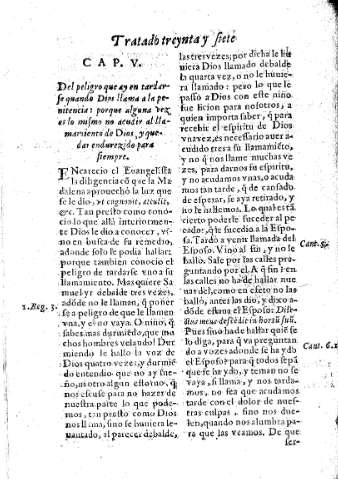 Tratado treynta y siete
CAP. V.
Del peligro que ay en tardar-
se quando Dios llama a la pe-
nitencia: porque alguna vez
es lo mismo no acudir al lla-
mamiento de Dios, y que-
dar endurezido para
siempre.
ENcarecio el Euangelista
la diligencia cõ que la Ma
dalena aprouechò la luz que
se le dio, vt cognouit, attulit,
&c. Tan presto como cono-
cio lo que allà interiormen-
te Dios le dio a conocer, vi-
no en busca de su remedio,
adonde solo le podia hallar:
porque tambien conocio el
peligro de tardarse vno a su
llamamiento. Mas quiere Sa
muel yr debalde tres vezes,
adõde no le llaman, q̃ poner
se a peligro de que le llamen
vna, y el no vaya. O niño, q̃
sabes mas durmiẽdo, que mu
chos hombres velando! Dur
miendo le hallo la voz de
Dios quatro vezes; y durmiẽ
do entendio que no ay sue-
ño, ni otro algun estoruo, q̃
nos escuse para no hazer de
nuestra parte lo que pode-
mos, tan presto como Dios
nos llama, sino se huuiera le-
uantado, al parecer debalde,
1. Reg. 3.
las tres vezes; por dicha le hu
uiera Dios llamado debalde
la quarta vez, o no le huuie-
ra llamado: pero lo que le
passò a Dios con este niño
fue licion para nosotros, a
quien importa saber, q̃ para
recebir el espiritu de Dios
vna vez, es necessario auer a
cudido tres a su llamamiẽto,
y no q̃ nos llame muchas ve
zes, para darnos su espiritu,
y no acudamos vnas, o acuda
mos tan tarde, q̃ de cansado
de esperar, se aya retirado, y
no le hallemos. Lo qual està
cierto poderle suceder al pe-
cador, q̃ le sucedio a la Espo-
sa. Tardò a venir llamada del
Esposo. Vino al fin, y no le
hallò. Sale por las calles pre-
guntando por el. A q̃ fin? en
las calles no ha de hallar nue
uas del, como en efeto no las
hallò, antes las dio, y dixo a
dõde estaua el Esposo: Dile-
ctus meus descẽdit in hortũ suũ.
Pues si no ha de hallar quiẽ se
lo diga, para q̃ va preguntan
do a vozes adonde se ha ydo
el Esposo? para q̃ todos sepã
que se ha ydo, y teman no se
vaya, si llama, y nos tarda-
mos, no sea que acudamos
tarde con el dolor de nues-
tras culpas, sino nos due-
len, quando nos alumbra pa-
ra que las veamos. De que
ser-
Cant. 5.
Cant. 6.1